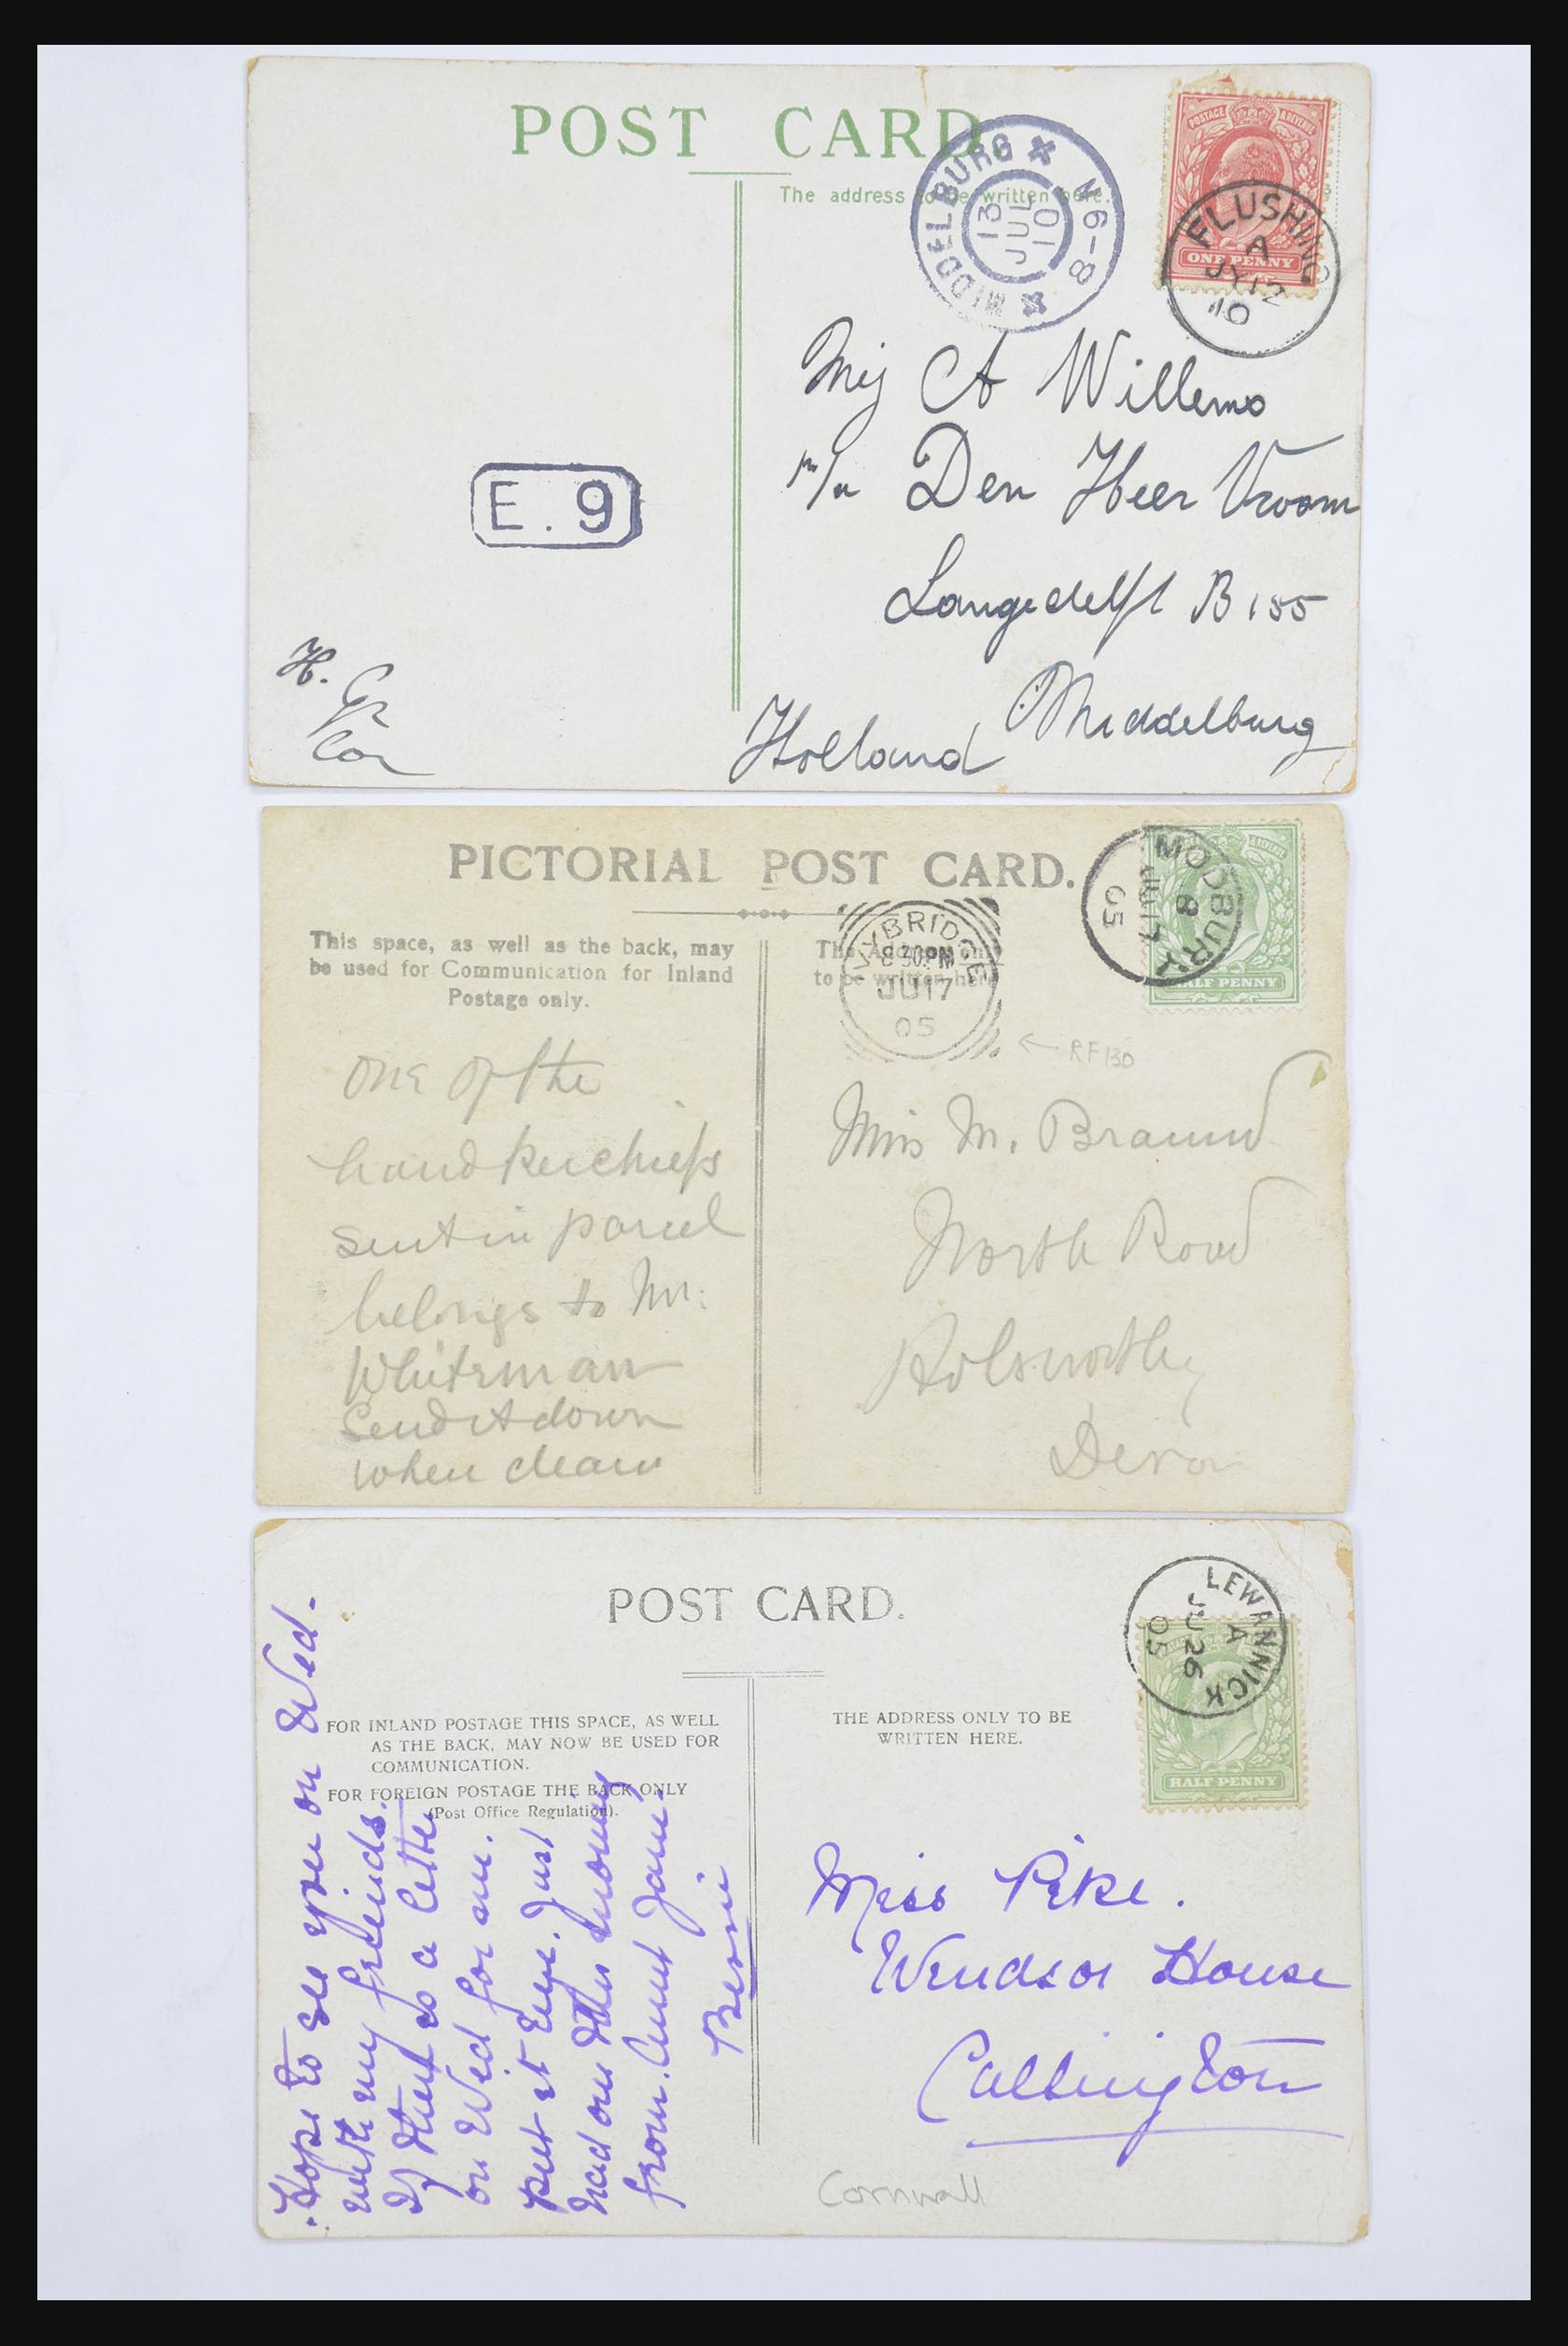 POST CARD.
The address to be written here.
POSTAGE & REVENUE
ONE PENNY
FLUSHING
A
JY 12
10
MIDDELBURG
13
JUL
10
N 6-8
Mej A Willems
p/a Den Heer Vroom
Langedelft B 155
Middelburg
Holland
E. 9
H.
Gr
Cor
PICTORIAL POST CARD.
This space, as well as the back, may
be used for Communication for Inland
Postage only.
The Address only
to be written here
IVYBRIDGE
8 30 PM
JU 17
05
MODBURY
8
JU 17
05
HALF PENNY
← RF130
one of the
handkerchiefs
sent in parcel
belongs to Mr.
Whiteman
Send it down
when clean
Miss M. Braund
North Road
Holsworthy
Devon
POST CARD.
FOR INLAND POSTAGE THIS SPACE, AS WELL
AS THE BACK, MAY NOW BE USED FOR
COMMUNICATION.
FOR FOREIGN POSTAGE THE BACK ONLY
(Post Office Regulation).
THE ADDRESS ONLY TO BE
WRITTEN HERE.
LEWANNICK
A
JU 26
05
HALF PENNY
Hope to see you on Wed.
with my freinds.
If there is a letter
on Wed for me.
put it Just
had one this morning
from Aunt Janie.
Bessie
Miss Pike.
Windsor House
Callington
Cornwall